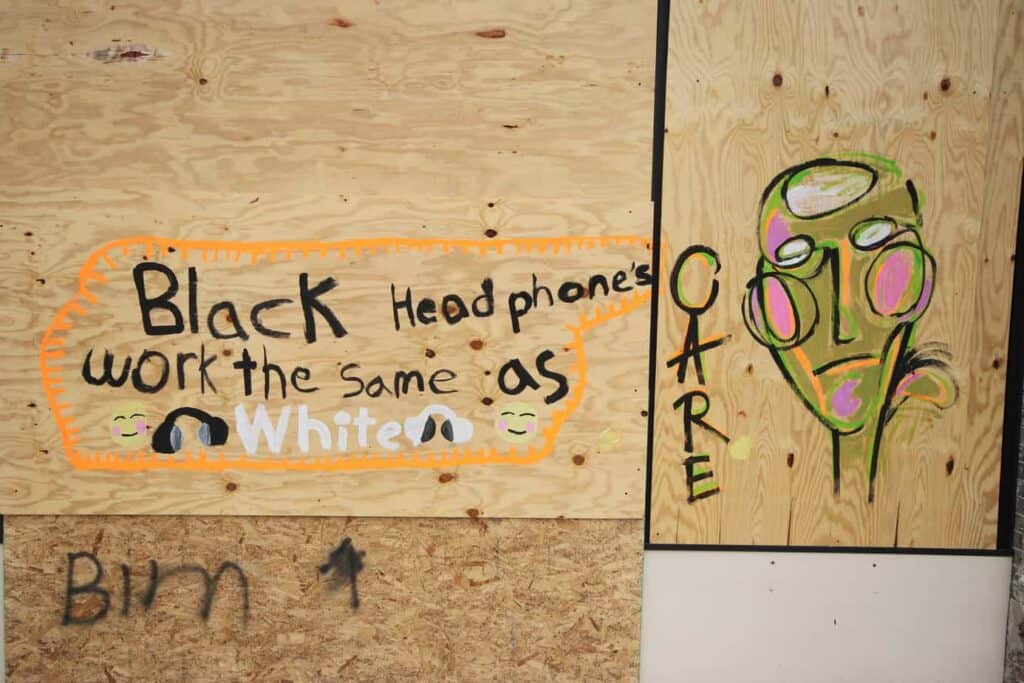 Black Headphone's
work the same as
White
CARE